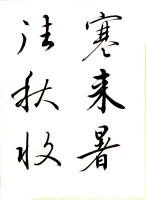 寒来暑
往秋收